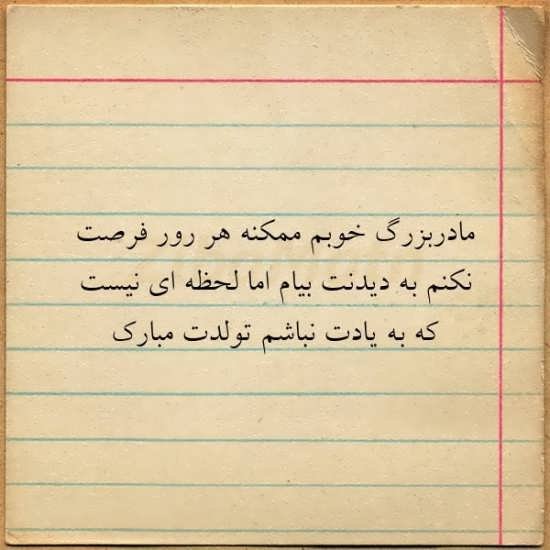 مادربزرگ خوبم ممکنه هر رور فرصت
نکنم به دیدنت بیام اما لحظه ای نیست
که به یادت نباشم تولدت مبارک